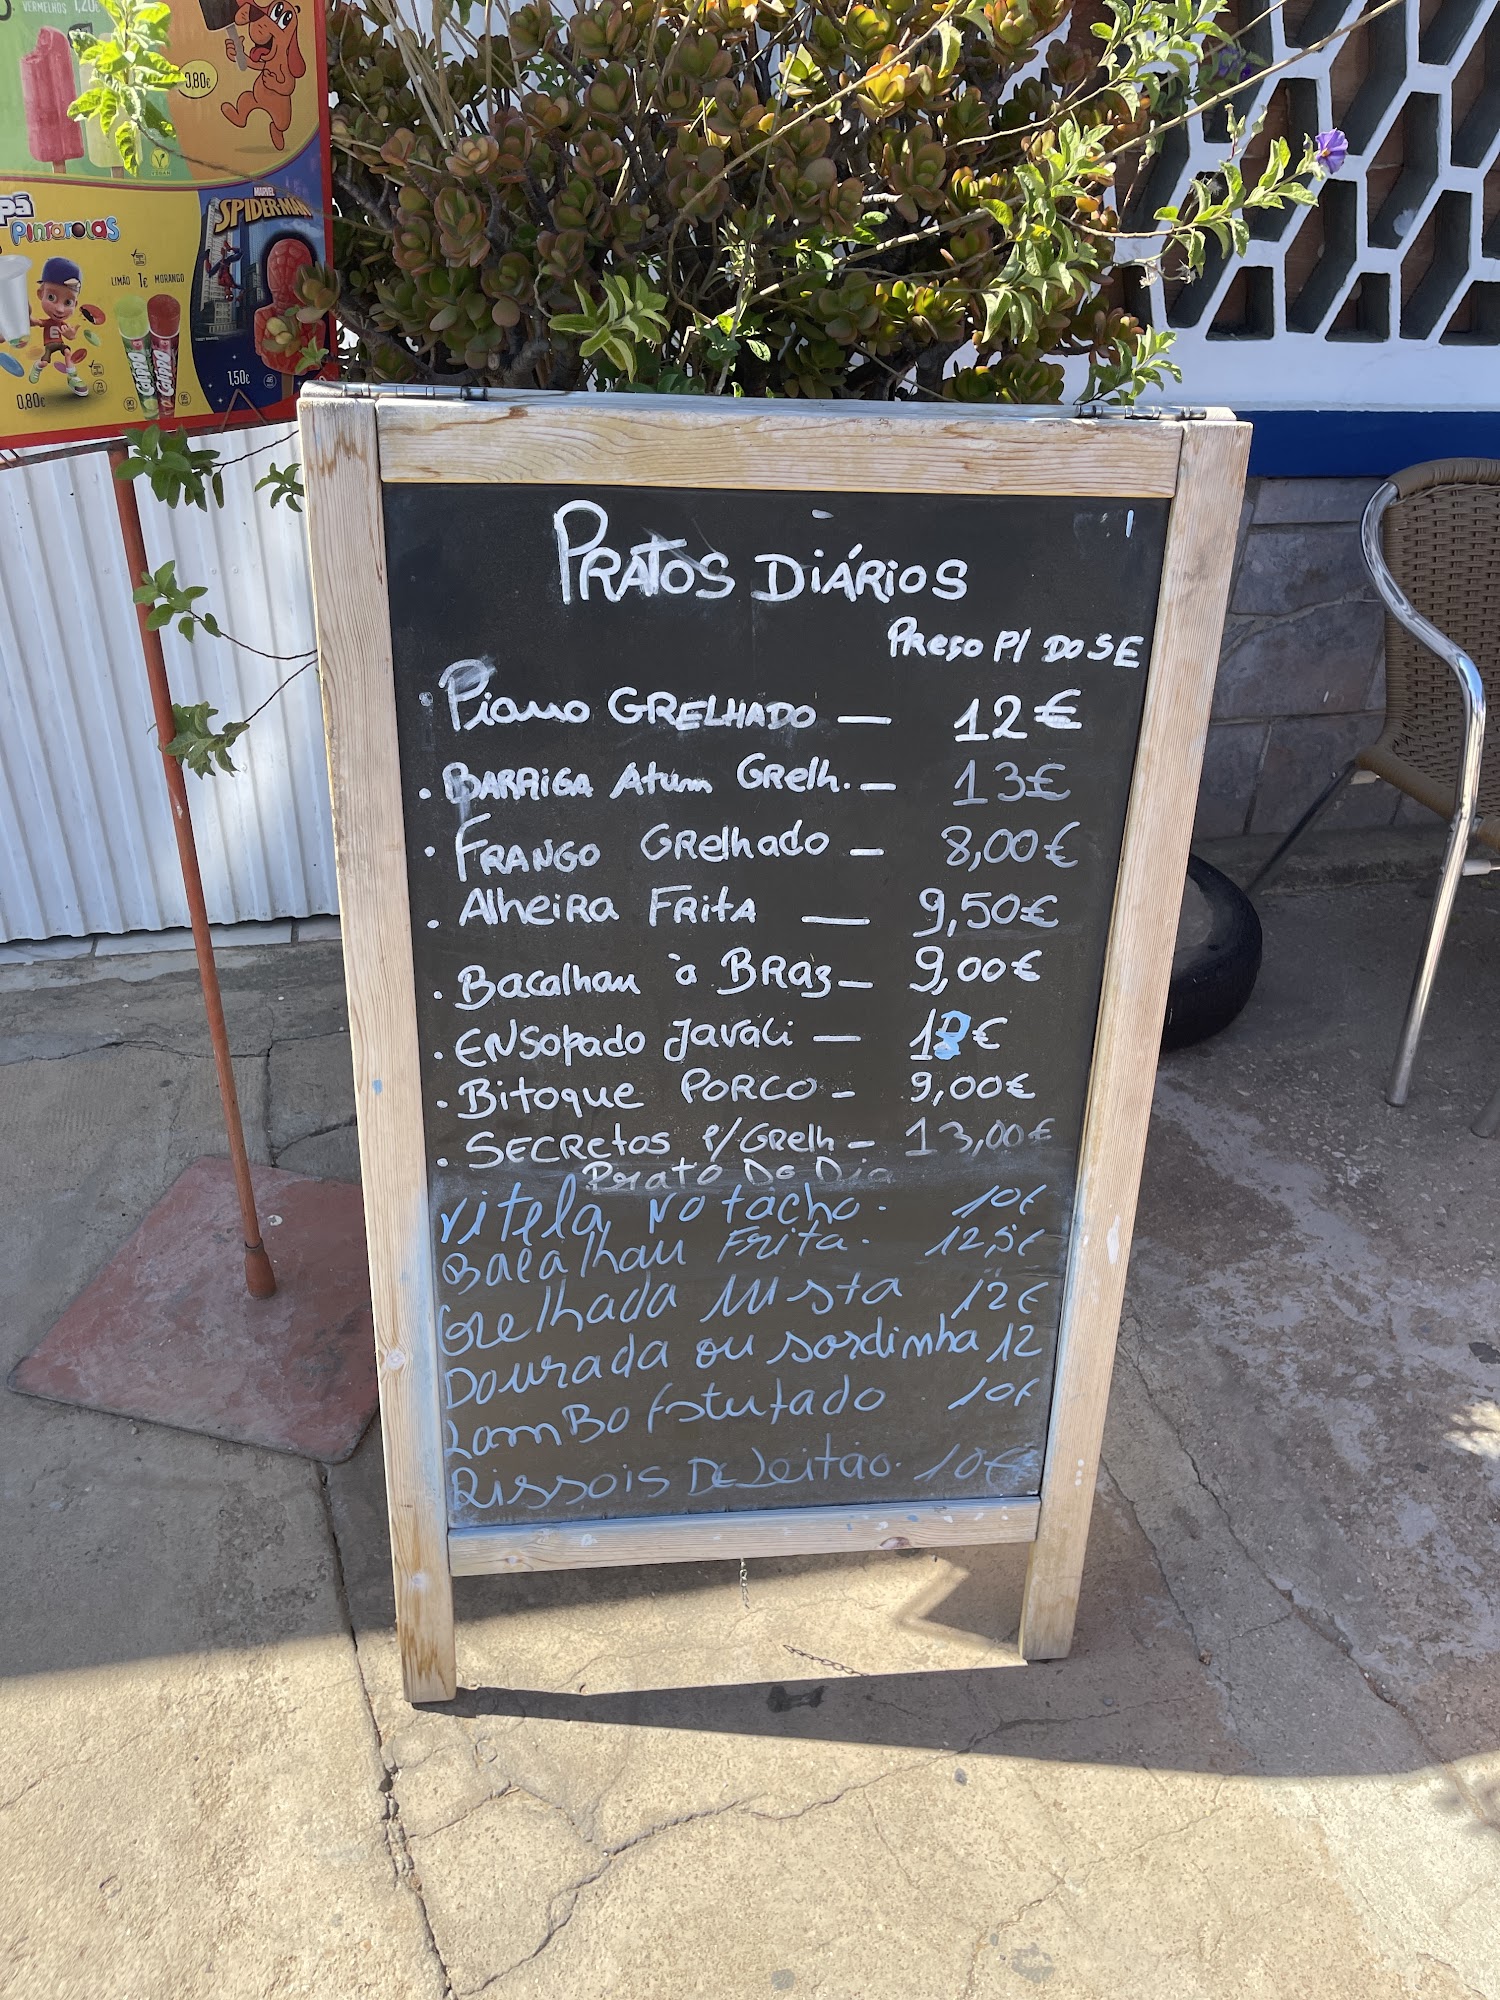 VERMELHOS 1,20€
0,80€
VEGAN
MARVEL
SPIDER-MAN
pã
PINTAROLAS
LIMÃO 1€ MORANGO
0,80€
1,50€
PRATOS DIÁRIOS
PRESO P/ DOSE
Piano GRELHADO — 12€
. BARRIGA Atum GRelh. — 13€
. FRANGO GRelhado — 8,00€
. Alheira FRita — 9,50€
. Bacalhau à BRAz — 9,00€
. ENSopado Javali — €
. Bitoque PORCO — 9,00€
. SECRetos P/GRelh — 13,00€
Prato De Dia
Vitela No tacho. 10€
Bacalhau Frita. 12,5€
Grelhada Mista 12€
Dourada ou sardinha 12
LamBo Estufado . 10€
Rissois De Leitão. 10€